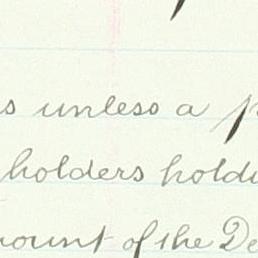 s unless a p
holders holdi
mount of the De